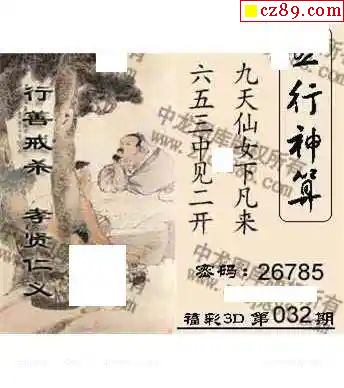 cz89.com
行神算
九天仙女下凡来
六五三中见二开
行善戒杀 孝贤仁义
密码：26785
福彩3D 第032期